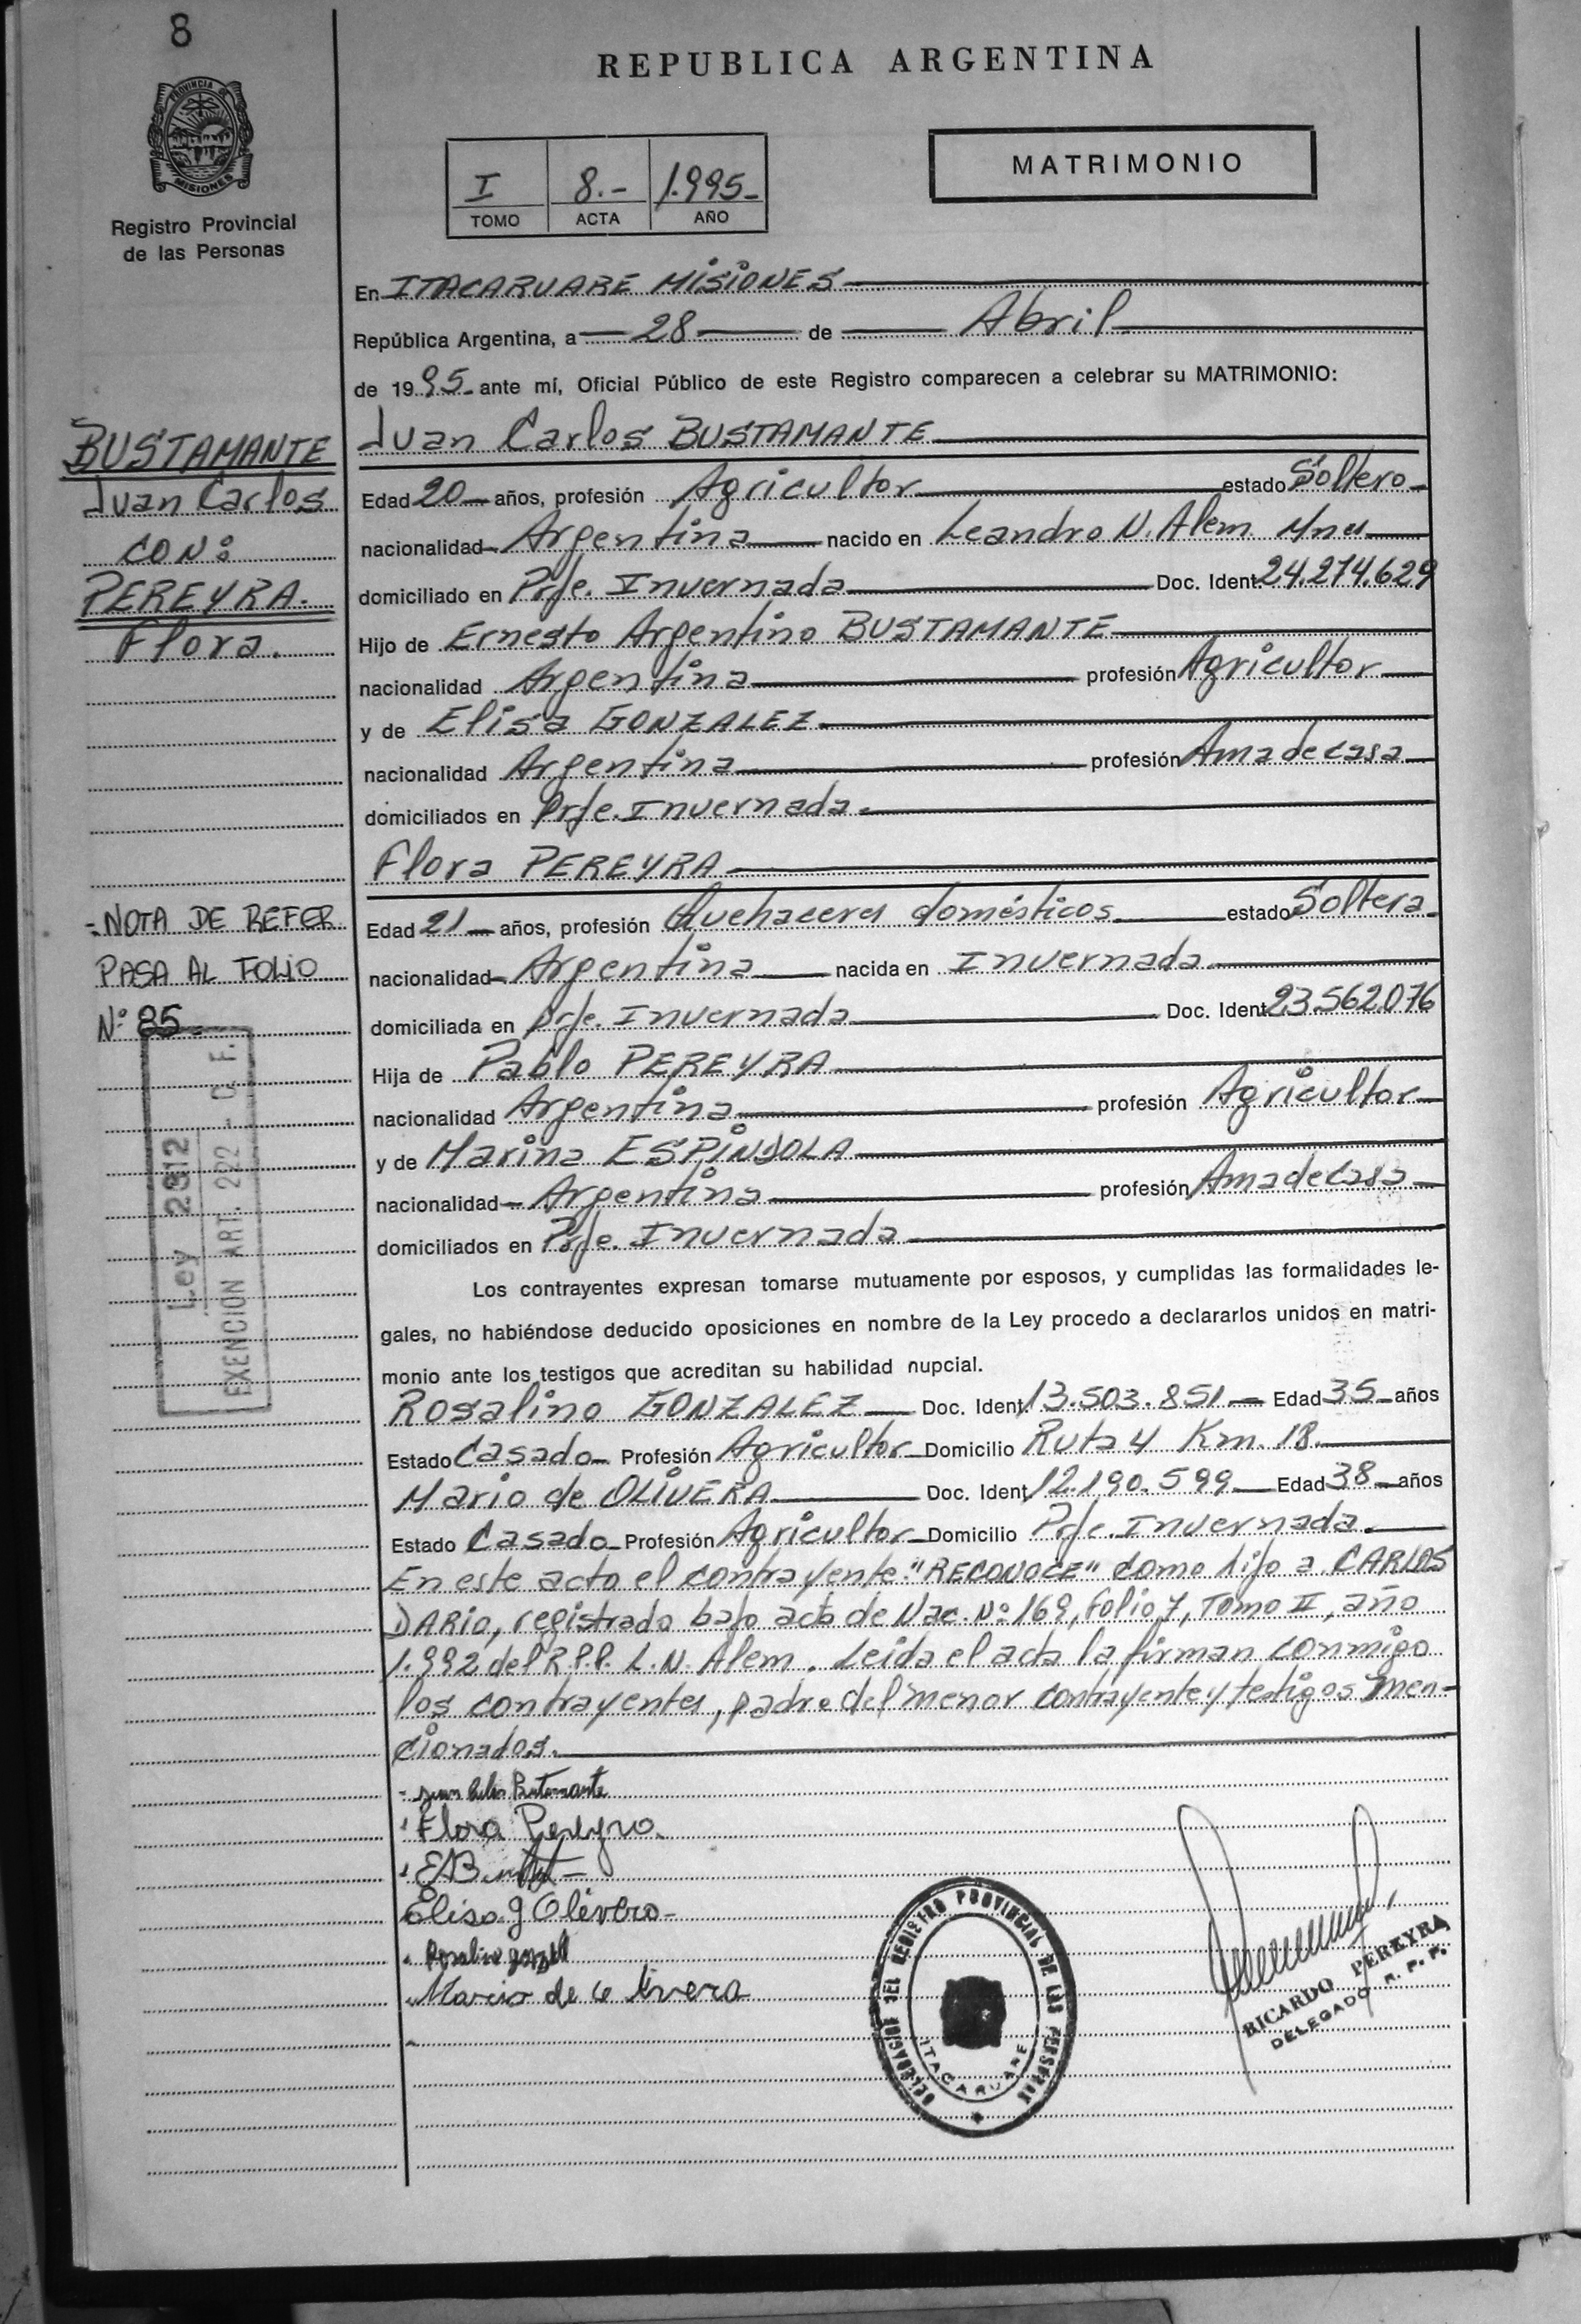 8
REPUBLICA ARGENTINA
PROVINCIA DE
MISIONES
Registro Provincial
de las Personas
I 8.- 1.995-
TOMO ACTA AÑO
MATRIMONIO
En ITACARUARE MISIONES
República Argentina, a 28 de Abril
de 1995- ante mí, Oficial Público de este Registro comparecen a celebrar su MATRIMONIO:
BUSTAMANTE
Juan Carlos
CON:
PEREYRA.
Flora.
Juan Carlos BUSTAMANTE
Edad 20 años, profesión Agricultor estado Soltero
nacionalidad Argentina nacido en Leandro N. Alem. Mnes
domiciliado en Prje. Invernada Doc. Ident. 24.274.629
Hijo de Ernesto Argentino BUSTAMANTE
nacionalidad Argentina profesión Agricultor
y de Elisa GONZALEZ
nacionalidad Argentina profesión Ama de casa
domiciliados en Prje. Invernada.
Flora PEREYRA
-NOTA DE REFER.
PASA AL FOLIO
Nº 85-
Edad 21 años, profesión Quehaceres domésticos estado Soltera
nacionalidad Argentina nacida en Invernada
domiciliada en Prje. Invernada Doc. Ident 23.562.076
Hija de Pablo PEREYRA
nacionalidad Argentina profesión Agricultor
y de Marina ESPINDOLA
nacionalidad Argentina profesión Ama de casa
domiciliados en Prje. Invernada
Ley 2312
EXENCION ART. 222 - C. F.
Los contrayentes expresan tomarse mutuamente por esposos, y cumplidas las formalidades le-
gales, no habiéndose deducido oposiciones en nombre de la Ley procedo a declararlos unidos en matri-
monio ante los testigos que acreditan su habilidad nupcial.
Rosalino GONZALEZ Doc. Ident. 13.503.851 Edad 35 años
Estado Casado Profesión Agricultor Domicilio Ruta 4 Km. 18.
Mario de OLIVERA Doc. Ident. 12.190.599 Edad 38 años
Estado Casado Profesión Agricultor Domicilio Prje. Invernada.
En este acto el contrayente "RECONOCE" como hijo a CARLOS
DARIO, registrado bajo acta de Nac. Nº 169, folio 7, Tomo II, año
1.992 del R.P.P. L.N. Alem. Leida el acta la firman conmigo
los contrayentes, padre del menor contrayente y testigos men-
cionados.
Juan Carlos Bustamante
Flora Pereyra.
Elisa g Olivera
Mario de O livera
DELEGACION DEL REGISTRO PROVINCIAL DE LAS PERSONAS
ITACARUARE
RICARDO PEREYRA
DELEGADO R. P. P.